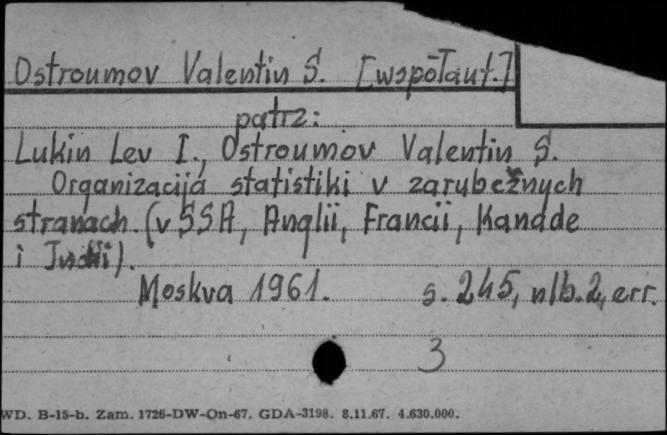 Ostroumov Valentin S. [współaut.]
patrz:
Lukin Lev I., Ostroumov Valentin S.
Organizacija statistiki v zarubežnych
stranach. (v SSA, Anglii, Francii, Kanade
i Indii).
Moskva 1961. s. 245, nlb. 2, err.
3
WD. B-15-b. Zam. 1726-DW-On-67. GDA-3198. 8.11.67. 4.630.000.